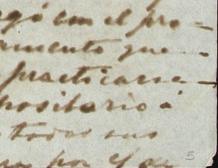 egó con el pro-
amento que
practicarse
positario á
todos sus
por
5